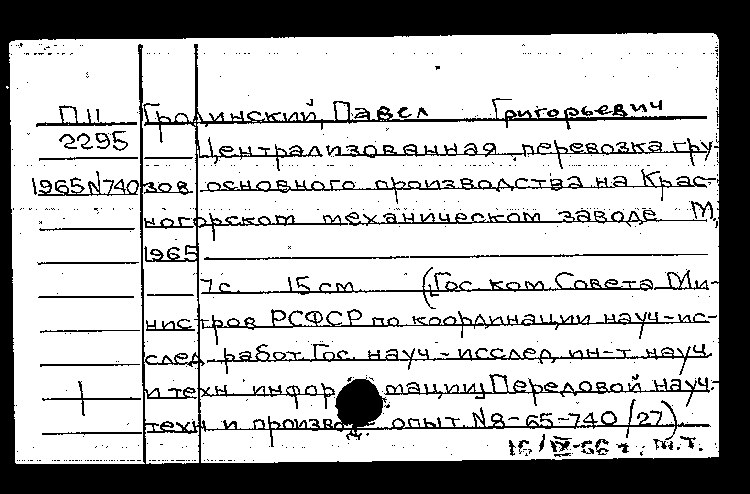 П.11 Гродинский, Павел Григорьевич
2295 Централизованная перевозка гру-
1965 N740 зов основного производства на Крас-
ногорском механическом заводе М,
1965
7с. 15 см (Гос. ком. Совета Ми-
нистров РСФСР по координации науч-ис-
след. работ. Гос. науч-исслед. ин-т науч.
и техн. информации) Передовой науч.-
техн и производ. опыт. N8-65-740/27).
16/IX-66 г. М.Т.